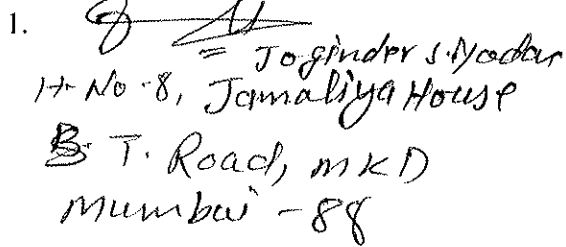 1.
Joginder S. Yadav
H-No-8, Jamaliya House
B. T. Road, MKD
Mumbai - 88